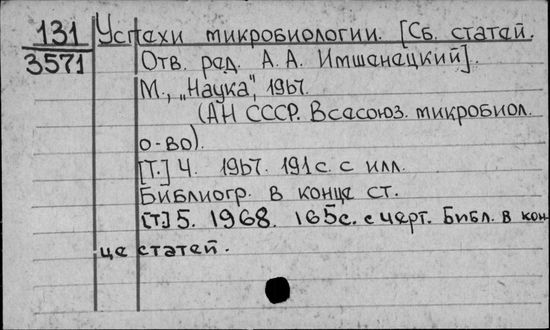 131 Успехи микробиологии. [Сб. статей.
3571 Отв. ред. А. А. Имшенецкий].
М., „Наука", 1967.
(АН СССР. Всесоюз. микробиол.
о-во).
[Т.] 4. 1967. 191 с. с илл.
Библиогр. в конце ст.
[т] 5. 1968. 165с. с черт. Библ. в кон-
це статей.